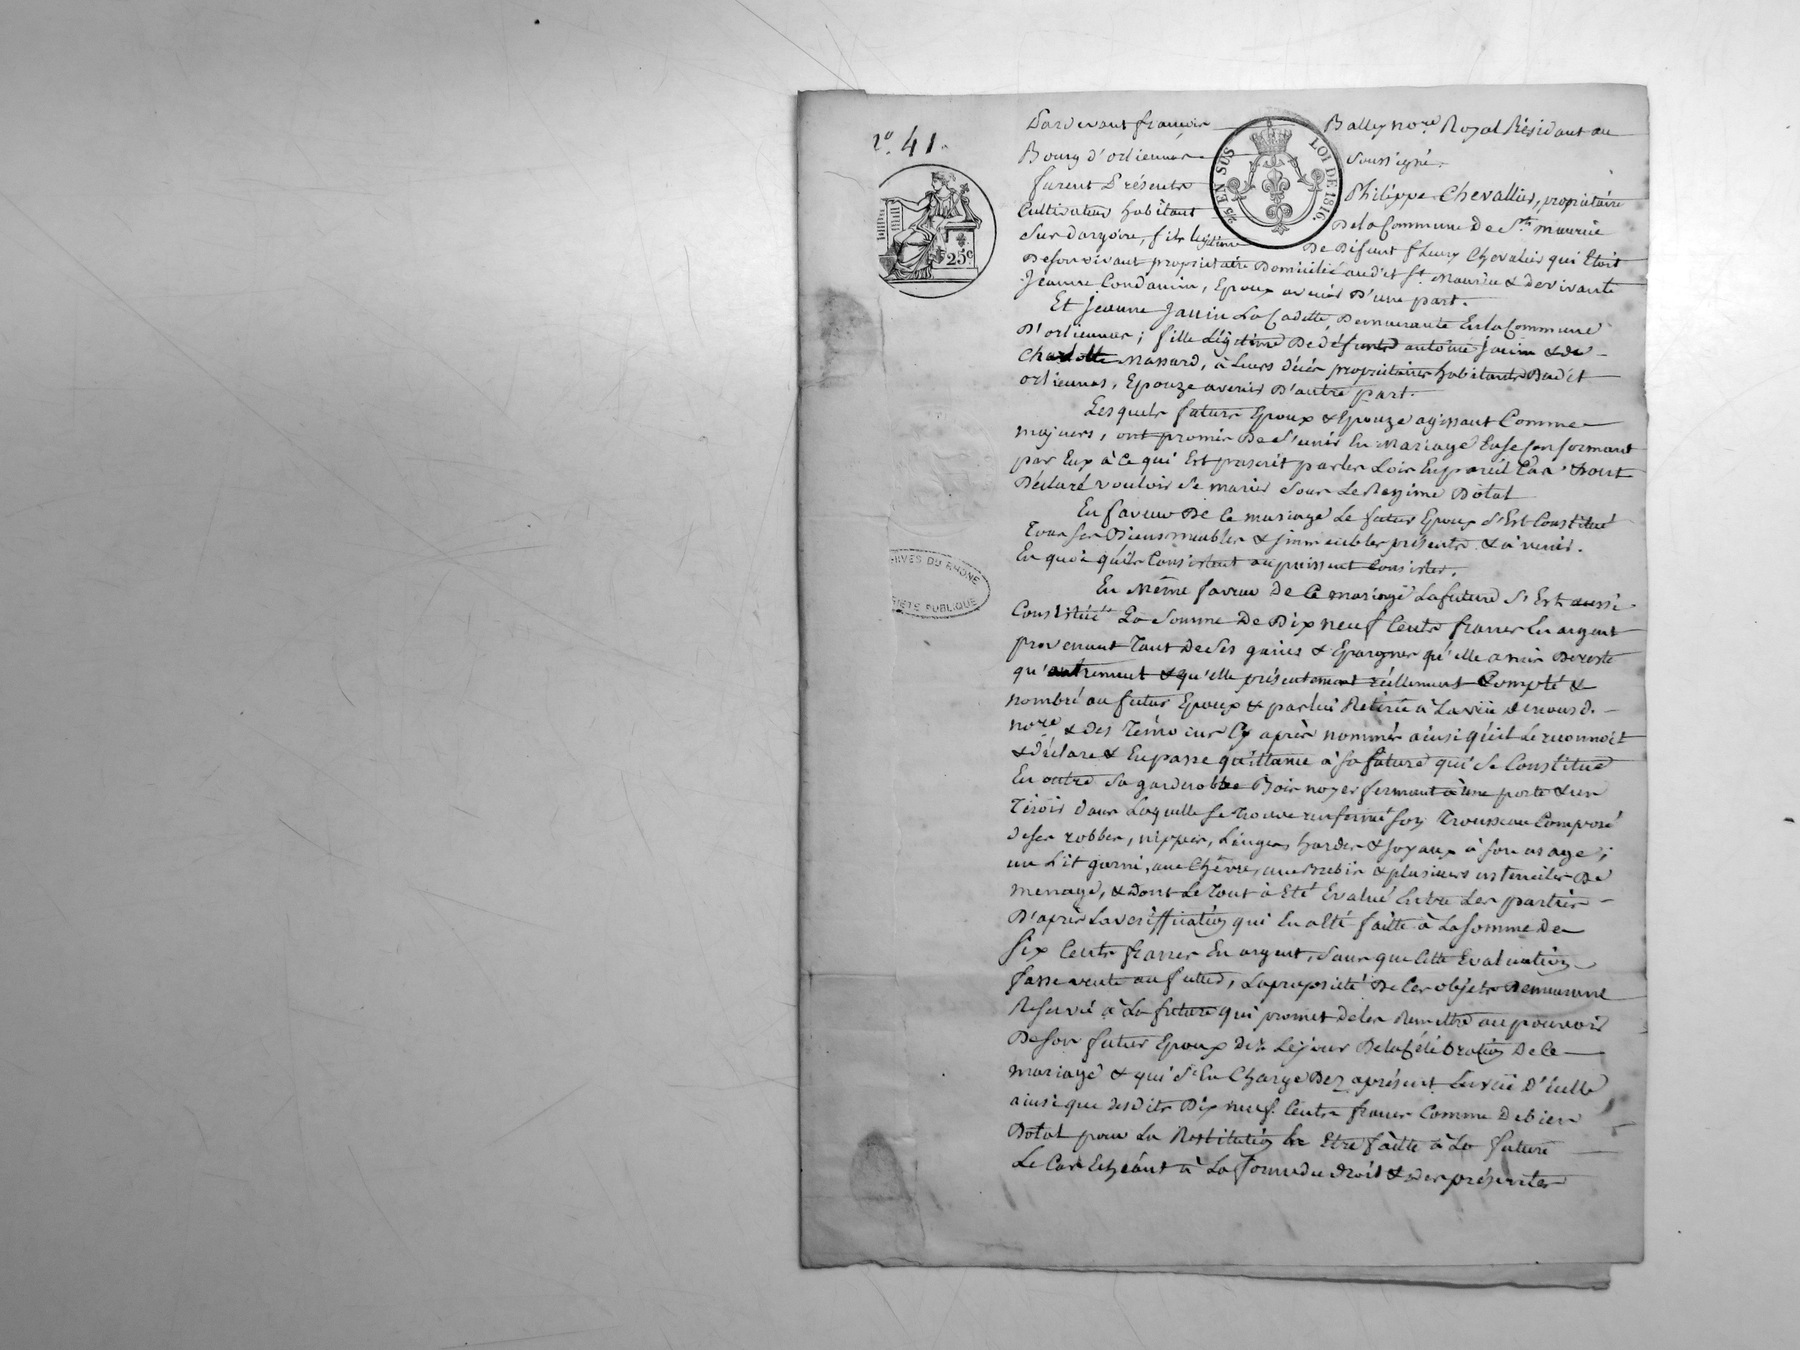 n.° 41.
25 EN SUS
LOI DE 1816.
25c
HIVES DU RHONE
RIETE PUBLIQUE
Pardevant françois Bally no.re Royal Résidant au
Bourg d'orliennas soussigné.
furent Présents Philippe Chevallier, propriétaire
Cultivateur habitant De la Commune de St. maurice
Sur dargoire, fils légitime De Défunt fleury Chevalier qui Etoit
De son vivant propriétaire Domicilié audit St. Maurice & de vivante
Jeanne Condamin, Epoux avenir D'une part.
Et Jeanne Jassin La Cadette Demeurante En la Commune
D'orliennas ; fille Légitime De défunts antoine Jassin & de
Charlotte Massard, à Leurs décès propriétaires habitants Dud'it
orliennas, Epouze avenir D'autre part.
Lesquels futurs Epoux & Epouze agissant Comme
majeurs, ont promis De S'unir En Mariage En se Conformant
par Eux à Ce qui Est prescrit par les Loix En pareil Cas & ont
Déclaré vouloir Se marier Sous Le Regime Dotal
En faveur De Ce mariage Le futur Epoux S'Est Constitué
Tous ses Biens meubles & immeubles présents & à venir.
En quoi qu'ils Consistent ou puissent Consister.
En Même faveur De Ce mariage La future S'Est aussi
Constitué La Somme De Dix neuf Cents francs En argent
provenant Tant De Ses gains & Epargnes qu'elle a mis De reste
qu'autrement & qu'elle présentement réellement Compté &
nombré au futur Epoux & par lui Retirée à La vüe De nous d.
no.re & des Témoins Cy après nommés ainsi qu'il Le reconnoit
& déclare & En passe quittance à sa future qui Se Constitue
En outre Sa garderobbe Bois noyer fermant à une porte & un
Tiroir dans Laquelle Se Trouve renfermé Son Trousseau Composé
de ses robbes, nippes, Linges, hardes & Joyaux à son usage ;
un Lit garni, une Chèvre, une Brebis & plusieurs ustencilles De
menage, & Dont Le Tout à Eté Evalué Entre Les parties
D'après La vériffication qui En a Eté faitte à La Somme De
Six Cents francs En argent, Sans que Cette Evaluation
fasse vente au futur, La propriété De Ces objets Demeurant
Reservée à La future qui promet de les Remettre au pouvoir
De son futur Epoux dès Le jour De la Célébration De Ce
mariage & qui S'En Charge Dez aprésent En vüe D'icelle
ainsi que desdits Dix neuf Cents francs Comme De bien
Dotal pour La Restitution En Etre faitte à La future
Le Cas Echéant à La forme du droit & des présentes